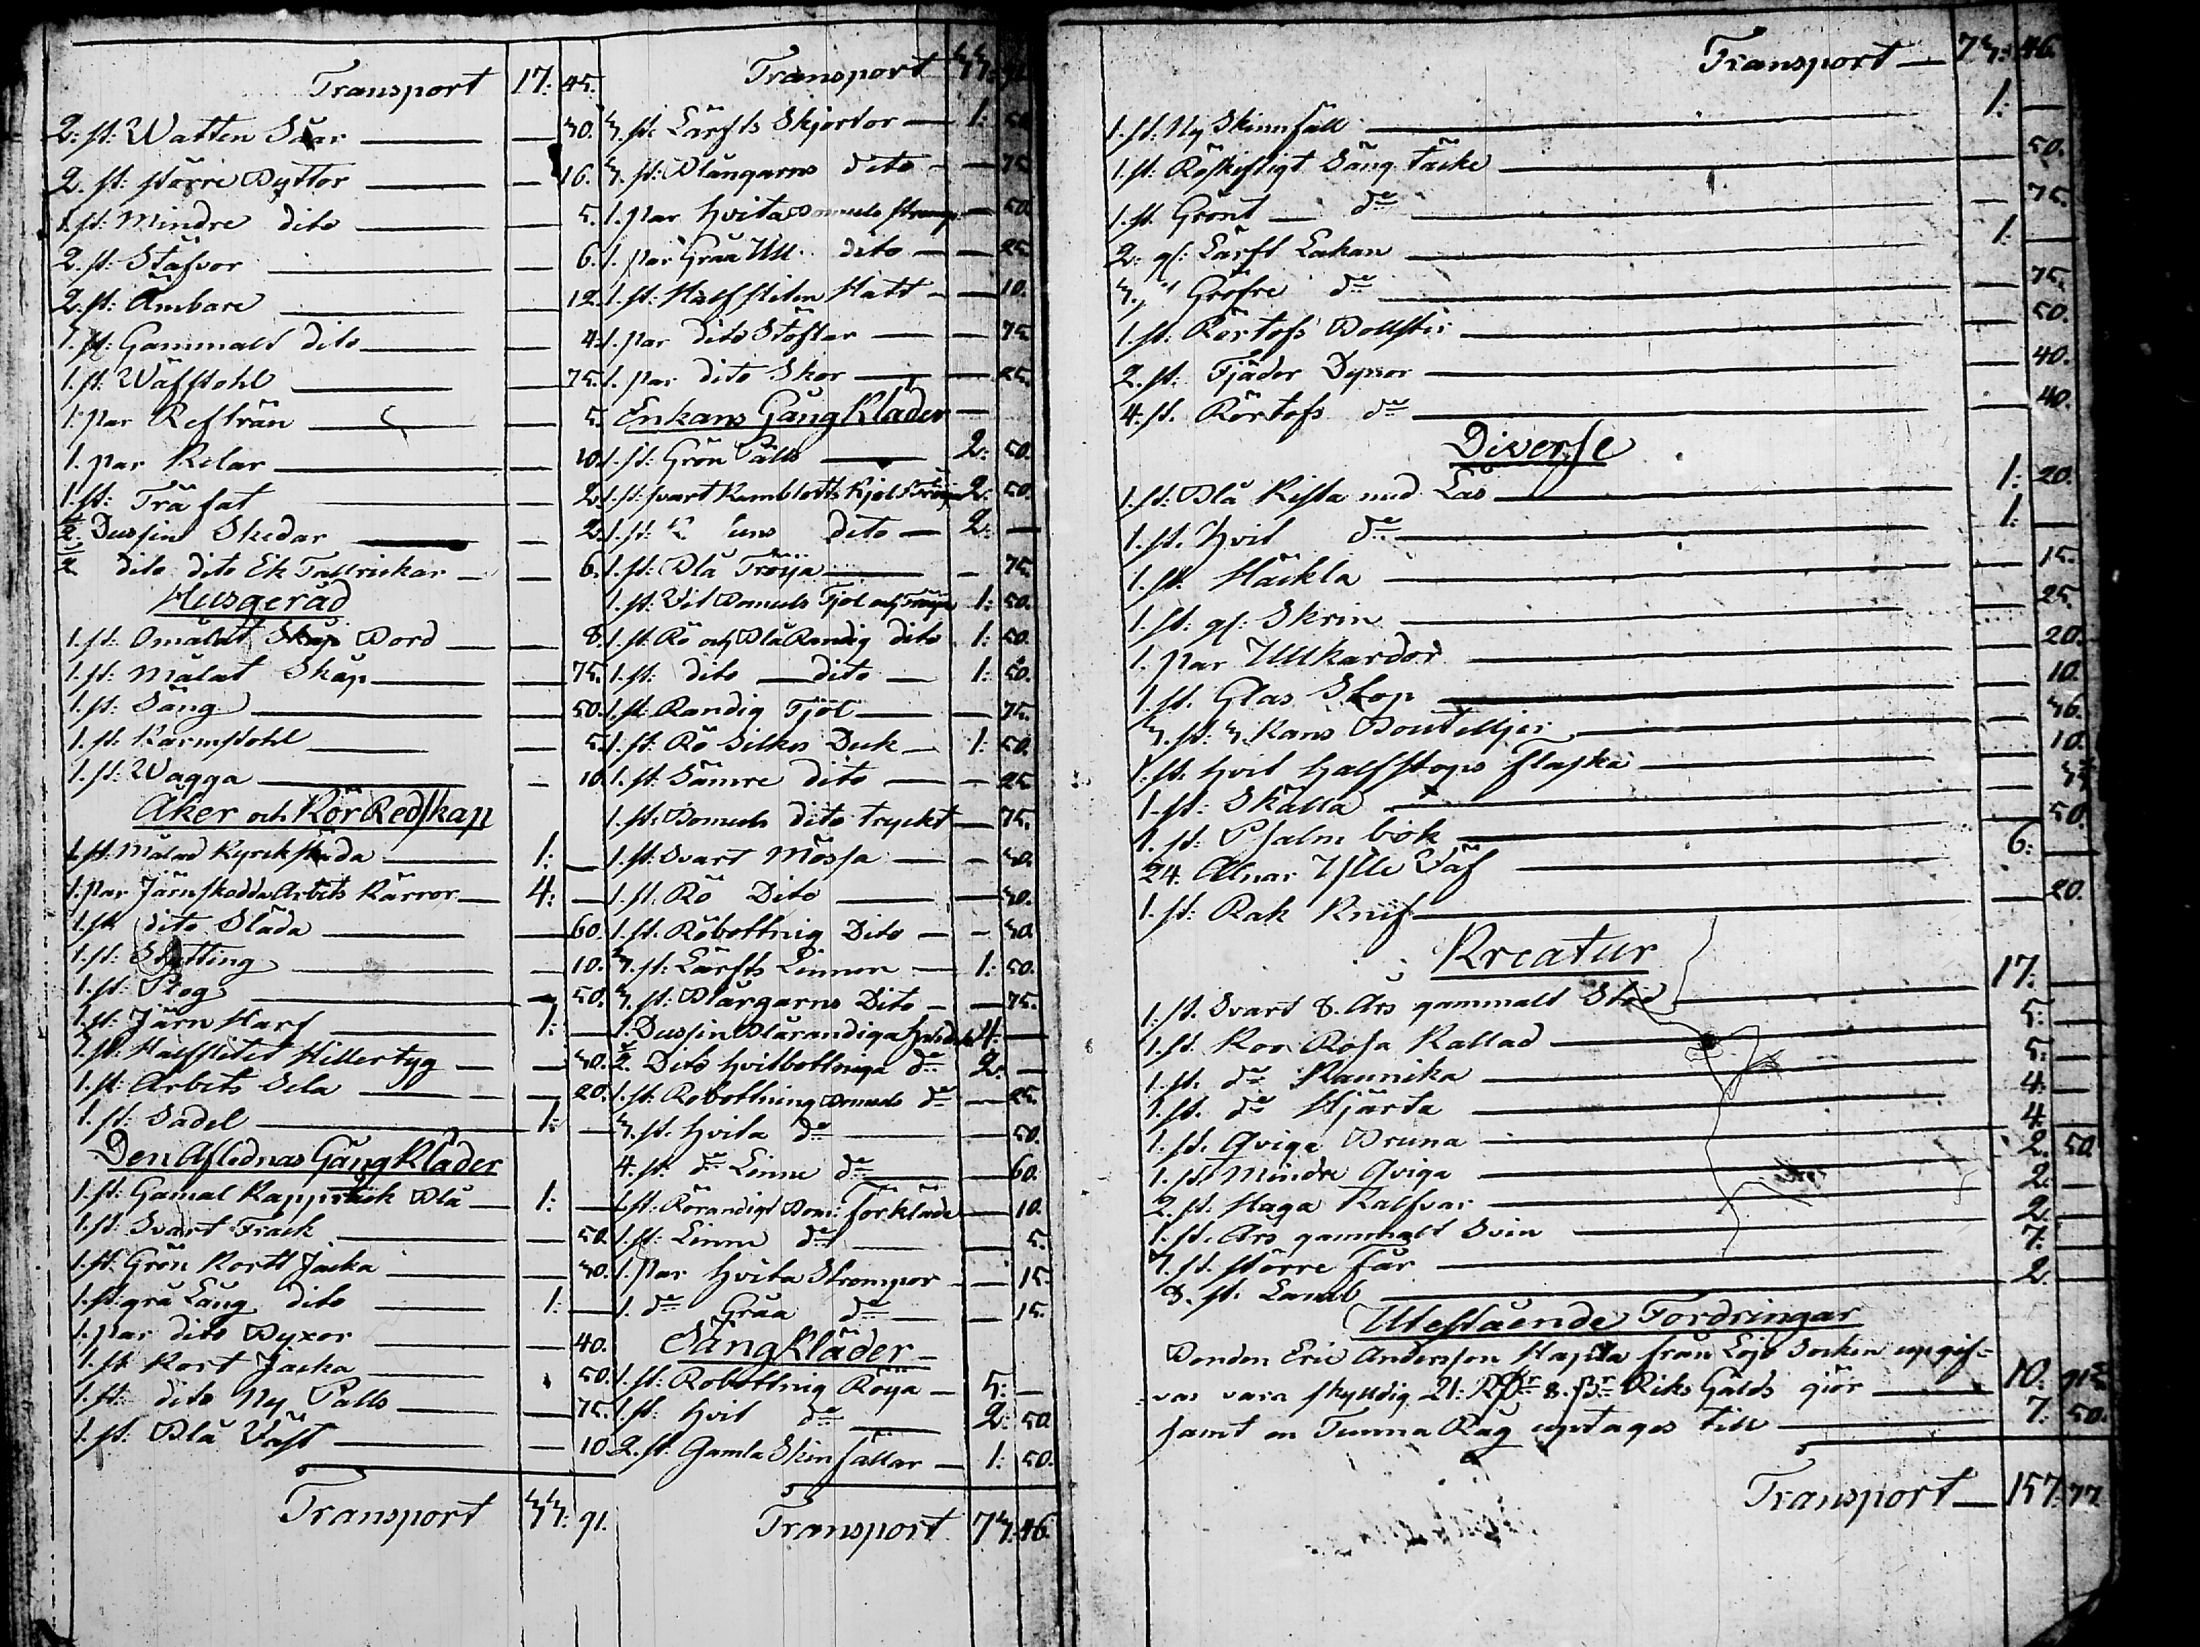 Transport 17: 45.
2: st: Watten Såar — 30.
2. st: större Byttor — 16.
1. st: Mindre dito — 5.
2. st: Stäfvor — 6.
2. st: Ämbare — 12.
1. st: Gammalt dito — 4.
1. st: Wäfstohl — 75.
1. par Refträn — 5.
1. par Relar — 10.
1. st: Trä fat — 2.
1/2 Dussin Skedar — 2.
1/2 dito dito Ek Tallrickar — 6.
Husgeråd
1. st: Omålat Skåp Bord — 8.
1. st: Målat Skåp — 75.
1. st: Säng — 50.
1. st. Karmstohl — 5.
1. st: Wagga — 10.
Åker och Kör Redskap
1. st: Målad Kyrck släda — 1: —
1. par Järnskodda Arbets Kärror — 4: —
1. st dito Släda — 60.
1. st: Stötting — 10.
1. st: Plog — 50.
1. st: Järn Harf — 1: —
1. st: Halfslitet Hillertyg — 30.
1. st: Arbets Sela — 20.
1. st: Sadel — 1: —
Den Aflednas Gång Kläder
1. st: Gamal Kappråck Blå — 1: —
1. st: Svart Frack — 50.
1. st: Grön Kortt Jacka — 30.
1. st: grå Lång dito — 1: —
1. par dito Byxor — 40.
1. st: Kort Jacka — 50.
1. st: dito Ny Palls — 75.
1. st: Blå Väst — 10.
Transport 33: 91.
Transport 33: 91
3. st: Lärfts Skjortor — 1: 50
3. st: Blångarns dito — 75
1. par hvita Bomuls strump — 50
1. par Gråa Ull dito — 25
1. st: Halfsliten Hatt — 10.
1. par dito Stöflar — 75
1. par dito Skor — 25.
Enkans Gång Kläder —
1. st: Grön Palls — 2: 50.
1. st: svart Kamblotts Kjol Tröja 2: 50.
1. st: dito — 2: —
1. st: Blå Tröija — 75.
1. st: Vit Bomuls Tjol och Tröja 1: 50.
1. st: Rö och Blå Randig dito 1: 50.
1. st: dito — dito — 1: 50.
1. st: Randig Tjol — 75.
1. st: Rö Silkes Duk — 1: 50.
1. st: Sämre dito — 25
1. st: Bomuls dito tryckt — 75.
1. st: Svart Mössa — 30.
1. st: Rö Dito — 30.
1. st: Röbottnig Dito — 30.
3. st: Lärfts Linnen — 1: 50.
3. st: Blårgarns Dito — 75.
1. Dussin Blårandiga 4: —
1/2. Dito hvitbottniga do 2. —
1. st: Röbottning Bomuls do — 25.
3. st. hvita do — 50.
4. st: do Linne do — 60.
1. st: Rörandigt Bom: förkläde — 10.
1. st: Linne do — 5.
1. par hvita Strompor — 15
1. do Gråa do — 15.
Sängkläder —
1. st: Röbottnig Röya — 5: —
1. st: hvit do — 2: 50
2. st: Gamla Skinfällar — 1: 50.
Transport 73: 46.
Transport — 73: 46.
1. st: Ny Skinnfäll — 1: —
1. st: Röskiftigt Säng Täcke — 50.
1. st. Grönt — do — 75.
2: gl: Lärft Lakan — 1: —
3. " Gröfre do — 75.
1. st: Rörtofs Bollster — 50.
2. st: Fjäder Dynor — 40.
4. st. Rörtofs do — 40.
Diverse
1. st: Blå Kista med Lås — 1: 20.
1. st. hvit do — 1: —
1. st: Häckla — 15.
1. st: gl: Skrin — 25.
1. par Ullkardor — 20.
1. st. Glas Stop — 10.
3. st: 3 Kans Boutelljer — 36.
1. st. hvit halfstops flaska — 10.
1. st: Skålla
1. st: Psalm bok — 50.
24. Alnar Ylle Väf — 6: —
1. st: Rak Knif — 20.
Kreatur
1. st. Svart 8. Års gammalt Stod — 17: —
1. st. Koo Rosa Kallad — 5: —
1. st. do Kaunika — 5. —
1. st. do Hjärta — 4. —
1. st. Qviga Bruna — 4. —
1. st. Mindre Qviga — 2. 50
2. st. Haga Kalfvar — 2. —
1. st. Års gammalt Svin — 2. —
7. st. större får — 7. —
8. st: Lamb — 2. —
Utestående Fordringar
Bonden Eric Andersson Hapila från Lojo Socken uppgif=
=var vara skylldig 21: Rdr 8. sr Riks Gälds giör — 10. 91
samt en Tunna Råg uptages till — 7: 50.
Transport — 157: 77